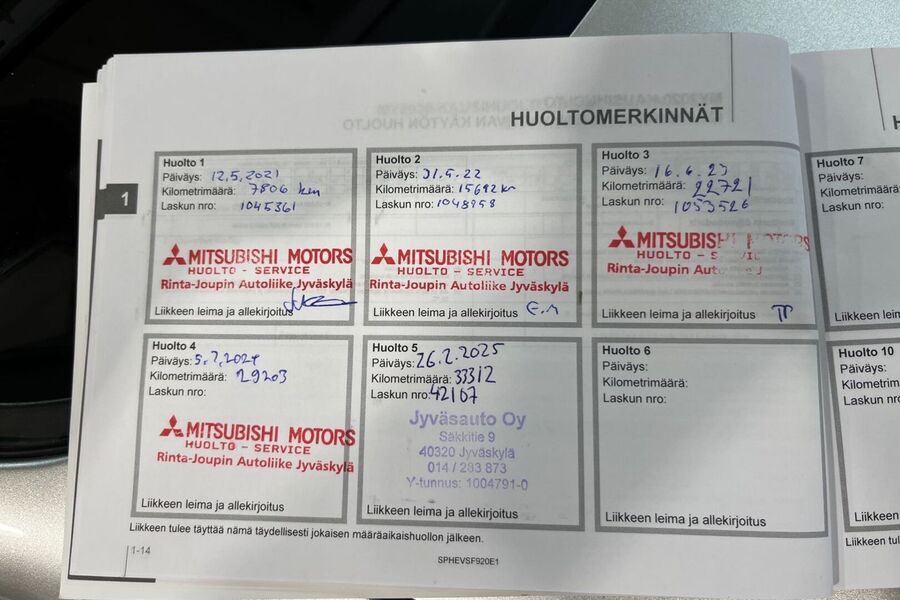 HUOLTOMERKINNÄT
1
Huolto 1
Päiväys: 12.5.2021
Kilometrimäärä: 7806 km
Laskun nro: 1045361
MITSUBISHI MOTORS
HUOLTO - SERVICE
Rinta-Joupin Autoliike Jyväskylä
Liikkeen leima ja allekirjoitus
Huolto 2
Päiväys: 31.5.22
Kilometrimäärä: 15692 km
Laskun nro: 1048958
MITSUBISHI MOTORS
HUOLTO - SERVICE
Rinta-Joupin Autoliike Jyväskylä
Liikkeen leima ja allekirjoitus E.M
Huolto 3
Päiväys: 16.6.23
Kilometrimäärä: 22721
Laskun nro: 1053526
MITSUBISHI MOTORS
HUOLTO -
Rinta-Joupin
Liikkeen leima ja allekirjoitus
Huolto 7
Päiväys:
Kilometrimäärä
Laskun nro:
Liikkeen leima
Huolto 4
Päiväys: 5.7.2024
Kilometrimäärä: 29203
Laskun nro:
MITSUBISHI MOTORS
HUOLTO - SERVICE
Rinta-Joupin Autoliike Jyväskylä
Liikkeen leima ja allekirjoitus
Huolto 5
Päiväys: 26.2.2025
Kilometrimäärä: 33312
Laskun nro: 42107
Jyväsauto Oy
Säkkitie 9
40320 Jyväskylä
014 / 283 873
Y-tunnus: 1004791-0
Liikkeen leima ja allekirjoitus
Huolto 6
Päiväys:
Kilometrimäärä:
Laskun nro:
Liikkeen leima ja allekirjoitus
Huolto 10
Päiväys:
Kilometri
Laskun nro:
Liikkeen
Liikkeen tulee täyttää nämä täydellisesti jokaisen määräaikaishuollon jälkeen.
Liikkeen tul
1-14
SPHEVSF920E1